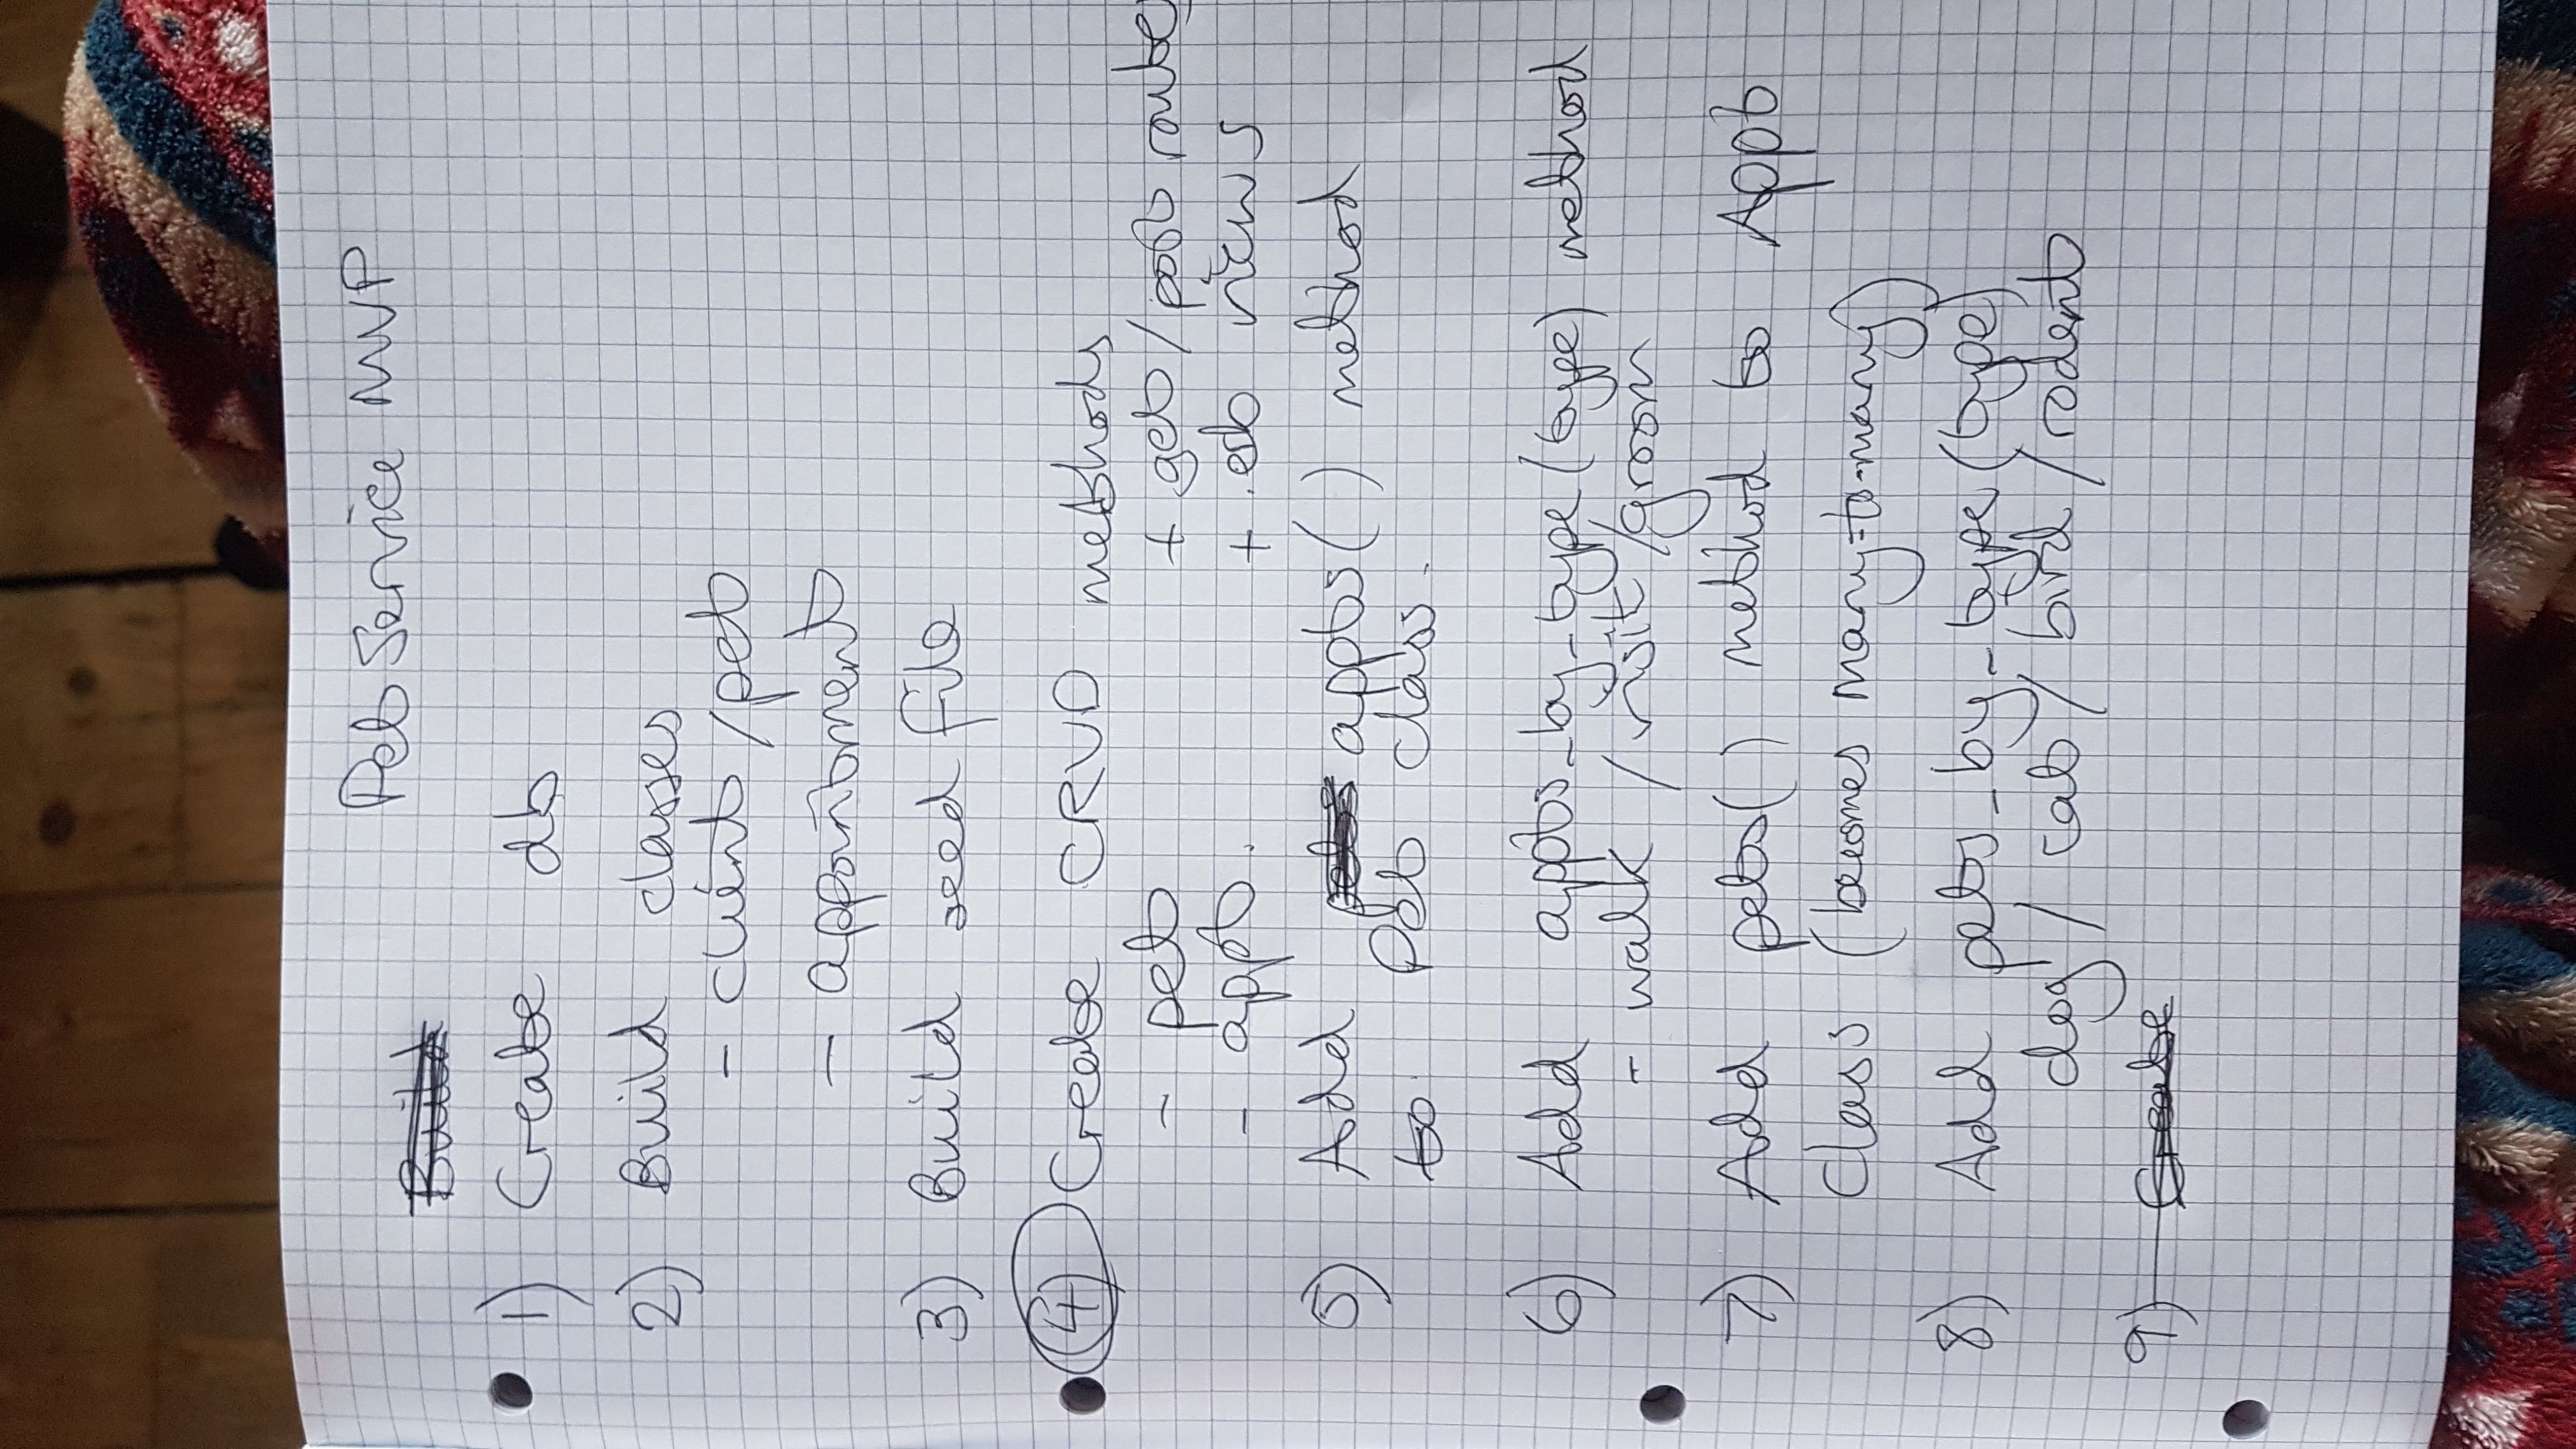 Pet Service MVP
Build
1) Create db
2) Build classes
- client/pet
- appointment
3) Build seed file
4) Create CRUD methods
- pet + get/post routes
- appt. + .erb views
5) Add pets appts() method
to Pet class.
6) Add appts_by_type(type) method
- walk / visit / groom
7) Add pets() method to Appt
Class (becomes many-to-many)
8) Add pets_by_type(type)
dog / cat / bird / rodent
9) Create